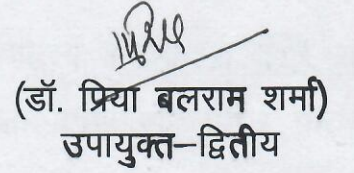 (डॉ. प्रिया बलराम शर्मा)
उपायुक्त–द्वितीय